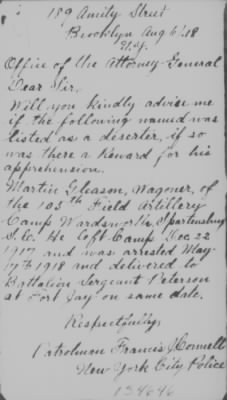 189 Amity Street
Brooklyn Aug 6/18
N.Y.
Office of the Attorney General
Dear Sir,
Will you kindly advise me
if the following named was
listed as a deserter, if so
was there a Reward for his
apprehension.
Martin Gleason, Wagoner, of
the 105th Field Artillery
Camp Wardsworth, Spartensburg
S.C. He left Camp Dec 22
1917 and was arrested May
17th 1918 and delivered to
Battalion Sergeant Peterson
at Fort Jay on same date.
Respectfully,
Patrolman Francis J Connell
New York City Police
134646